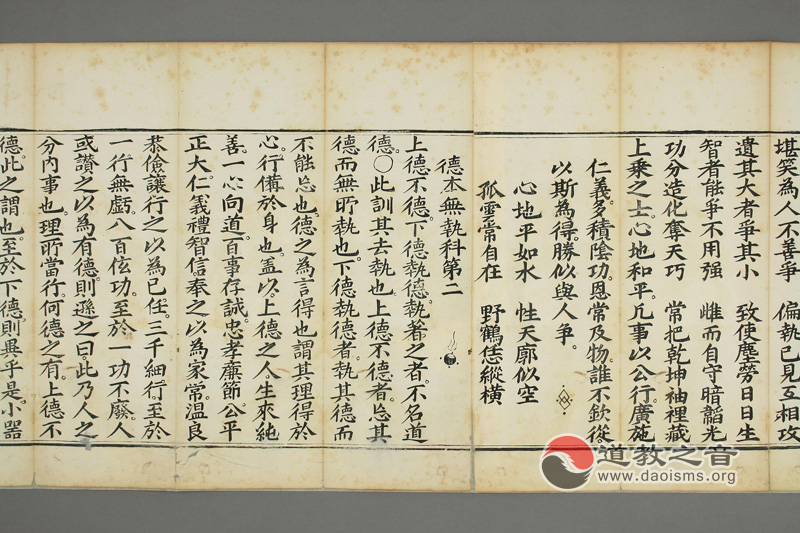 堪笑為人不善爭　偏執己見互相攻
遺其大者爭其小　致使塵勞日日生
智者能爭不用强　雌而自守暗韜光
功分造化奪天巧　常把乾坤袖裡藏
上乘之士。心地和平。凢事以公。行廣施
仁義。多積陰功。恩常及物。誰不欽從。
以斯為得。勝似與人爭。
心地平如水　性天廓似空
孤雲常自在　野鶴恁縱橫
德本無執科第二
上德不德。下德執德。執著之者。不名道
德。〇此訓其去執也。上德不德者。忘其
德而無所執也。下德執德者。執其德而
不能忘也。德之為言得也。謂其理得於
心。行備於身也。盖以上德之人。生來純
善。一心向道。百事存誠。忠孝廉節。公平
正大。仁義禮智信奉之以為家常。溫良
恭儉讓行之以為已任。三千細行至於
一行無虧。八百伭功。至於一功不廢。人
或讚之以為有德。則遜之曰。此乃人之
分內事也。理所當行。何德之有。上德不
德。此之謂也。至於下德則異乎是。小器
道教之音
www.daoisms.org